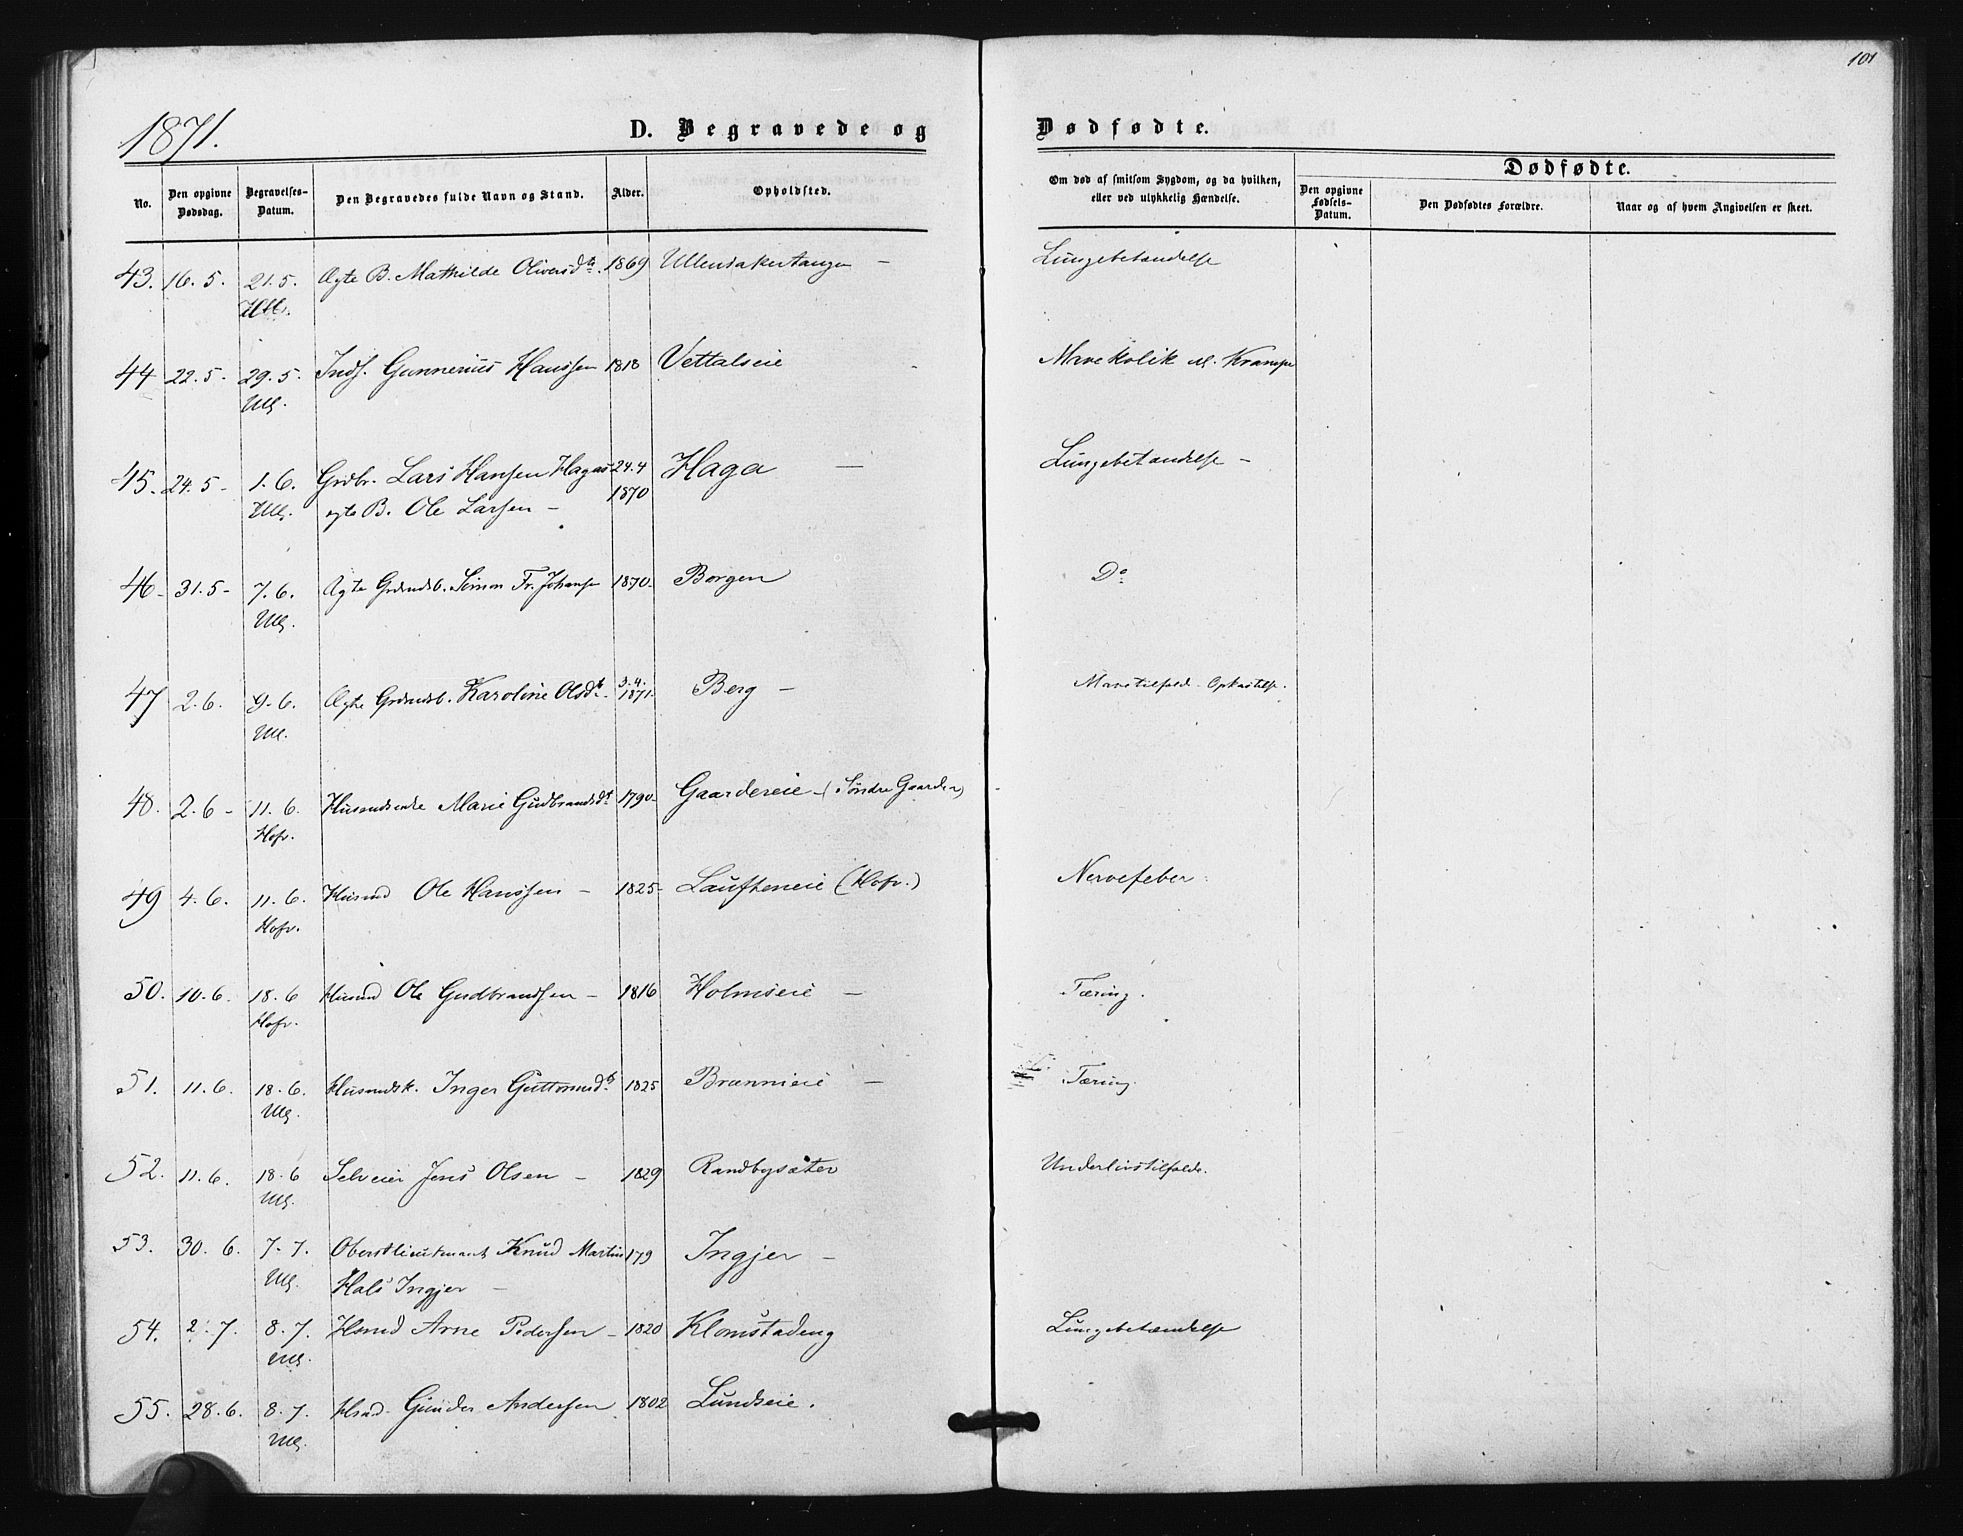 101
1871.
D. Begravede og Dødfødte.
No.
Den opgivne Dødsdag.
Begravelses-Datum.
Den Begravedes fulde Navn og Stand.
Alder.
Opholdsted.
Om død af smitsom Sygdom, og da hvilken,
eller ved ulykkelig Hændelse.
Dødfødte.
Den opgivne Fødsels-Datum.
Den Dødfødtes Forældre.
Naar og af hvem Angivelsen er skeet.
43. 16.5. 21.5. Ægte B. Mathilde Oliversdtr. 1869 Ullensakertangen – Lungebetændelse
44 22.5- 29.5. Inds. Gunnerius Hanssen 1818 Vettalseie Mavekolik m. Krampe
Ull.
45. 24.5- 1.6. Grdbr. Lars Hansen Hagas 24.4 Haga – Lungebetændelse –
Ull. egte B. Ole Larsen – 1870
46- 31.5- 7.6. Ægte Grdmdsb. Simon Fr. Johansen 1870- Borgen Do
Ull.
47 2.6. 9.6. Ægte Grdmdsb. Karoline Olsdtr. 3.4. 1871- Berg – Mavetilfæld. Opkastelse.
Ull.
48. 2.6- 11.6. Husmdsenke Marie Gudbrandsdt 1790- Gaardereie (Søndre Gaarder)
Hofv.
49 4.6. 11.6. Husmd Ole Hanssen – 1825- Laufteneie (Hofv.) Nervefeber.
Hofv.
50. 10.6. 18.6 Husmd Ole Gudbrandsen – 1816 Holmseie – Tæring.
Hofv.
51. 11.6. 18.6. Husmdsk. Inger Guttormsdtr. 1825 Brænnieie – Tæring.
Ull.
52. 11.6. 18.6 Selveier Jens Olsen – 1829 Randbysæter Underlivstilfælde.
Ull.
53. 30.6. 7.7. Oberstlieutenant Knud Martin 179 Ingjer –
Ull. Hals Ingjer –
54. 2.7. 8.7. Hsmd Arne Pedersen – 1820 Klomstadeng Lungebetændelse
Ull.
55. 28.6. 8.7. Hsmd. Gunder Andersen 1802 Lundseie.
Ull.